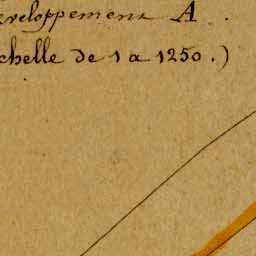 éveloppement A.
chelle de 1 a 1250.)